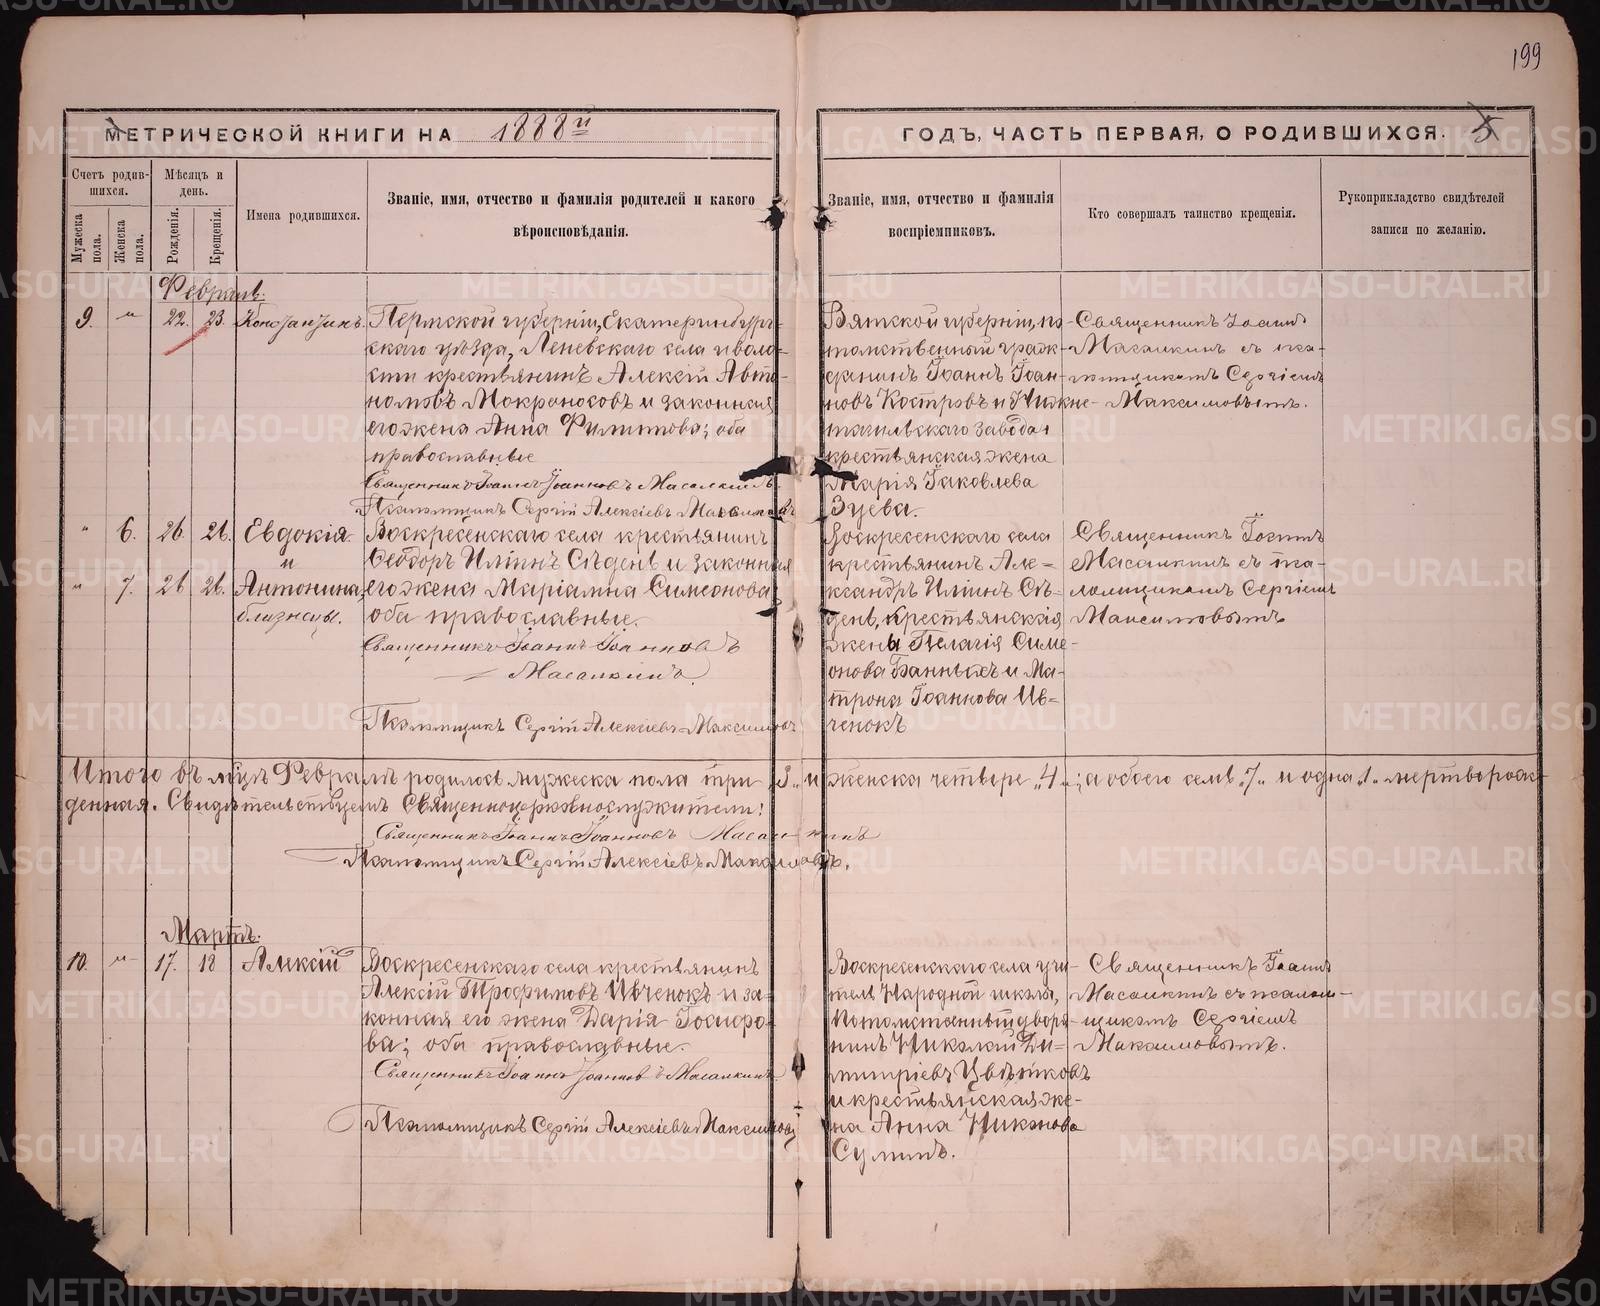 199
МЕТРИЧЕСКОЙ КНИГИ НА 1888й
ГОДЪ, ЧАСТЬ ПЕРВАЯ, О РОДИВШИХСЯ. 5
Счетъ родив-
шихся.
Мѣсяцъ и
день.
Мужеска
пола.
Женска
пола.
Рожденія.
Крещенія.
Имена родившихся.
Званіе, имя, отчество и фамилія родителей и какого
вѣроисповѣданія.
Званіе, имя, отчество и фамилія
воспріемниковъ.
Кто совершалъ таинство крещенія.
Рукоприкладство свидѣтелей
записи по желанію.
Февраль.
9. „ 22. 23. Константинъ.
Пермской губерніи, Екатеринбург-
скаго уѣзда, Леневскаго села и воло-
сти крестьянинъ Алексій Авто-
номовъ Мокроносовъ и законная
его жена Анна Филиппова; оба
православные
Священникъ Іоаннъ Іоанновъ Масалкинъ.
Псаломщикъ Сергій Алексіевъ Максимовъ
Вятской губерніи, по-
томственный граж-
данинъ Іоаннъ Іоан-
новъ Костровъ и Нижне-
тагильскаго завода
крестьянская жена
Марія Іаковлева
Зуева.
Священникъ Іоаннъ
Масалкинъ съ пса-
ломщикомъ Сергіемъ
Максимовымъ.
„ 6. 26. 26. Евдокія
и
„ 7. 26 26. Антонина,
близнецы.
Воскресенскаго села крестьянинъ
Ѳеодоръ Илiинъ Сѣдень и законная
его жена Маріамна Симеонова;
оба православные.
Священникъ Іоаннъ Іоанновъ
Масалкинъ
Псаломщикъ Сергій Алексіевъ Максимовъ
Воскресенскаго села
крестьянинъ Але-
ксандръ Илiинъ Сѣ-
день, крестьянскія
жены Пелагія Симе-
онова Банныхъ и Ма-
трона Іоаннова Ив-
ченокъ
Священникъ Іоаннъ
Масалкинъ съ пса-
ломщикомъ Сергіемъ
Максимовымъ
Итого въ мцѣ Февралѣ родилось мужеска пола три „3„ и женска четыре „4„; а обоего семь „7„ и одна „1„ мертворож-
денная. Свидѣтельствуемъ Священноцерковнослужители:
Священникъ Іоаннъ Іоанновъ Масалкинъ
Псаломщикъ Сергій Алексіевъ Максимовъ.
Мартъ.
10. „ 17. 18 Алексій
Воскресенскаго села крестьянинъ
Алексій Трофимовъ Ивченокъ и за-
конная его жена Дарія Іосифо-
ва; оба православные.
Священникъ Іоаннъ Іоанновъ Масалкинъ
Псаломщикъ Сергій Алексіевъ Максимовъ
Воскресенскаго села учи-
тель Народной школы,
потомственный дворя-
нинъ Николай Ди-
митріевъ Цвѣтковъ
и крестьянская же-
на Анна Никонова
Сулимъ.
Священникъ Іоаннъ
Масалкинъ съ псалом-
щикомъ Сергіемъ
Максимовымъ.
METRIKI.GASO-URAL.RU